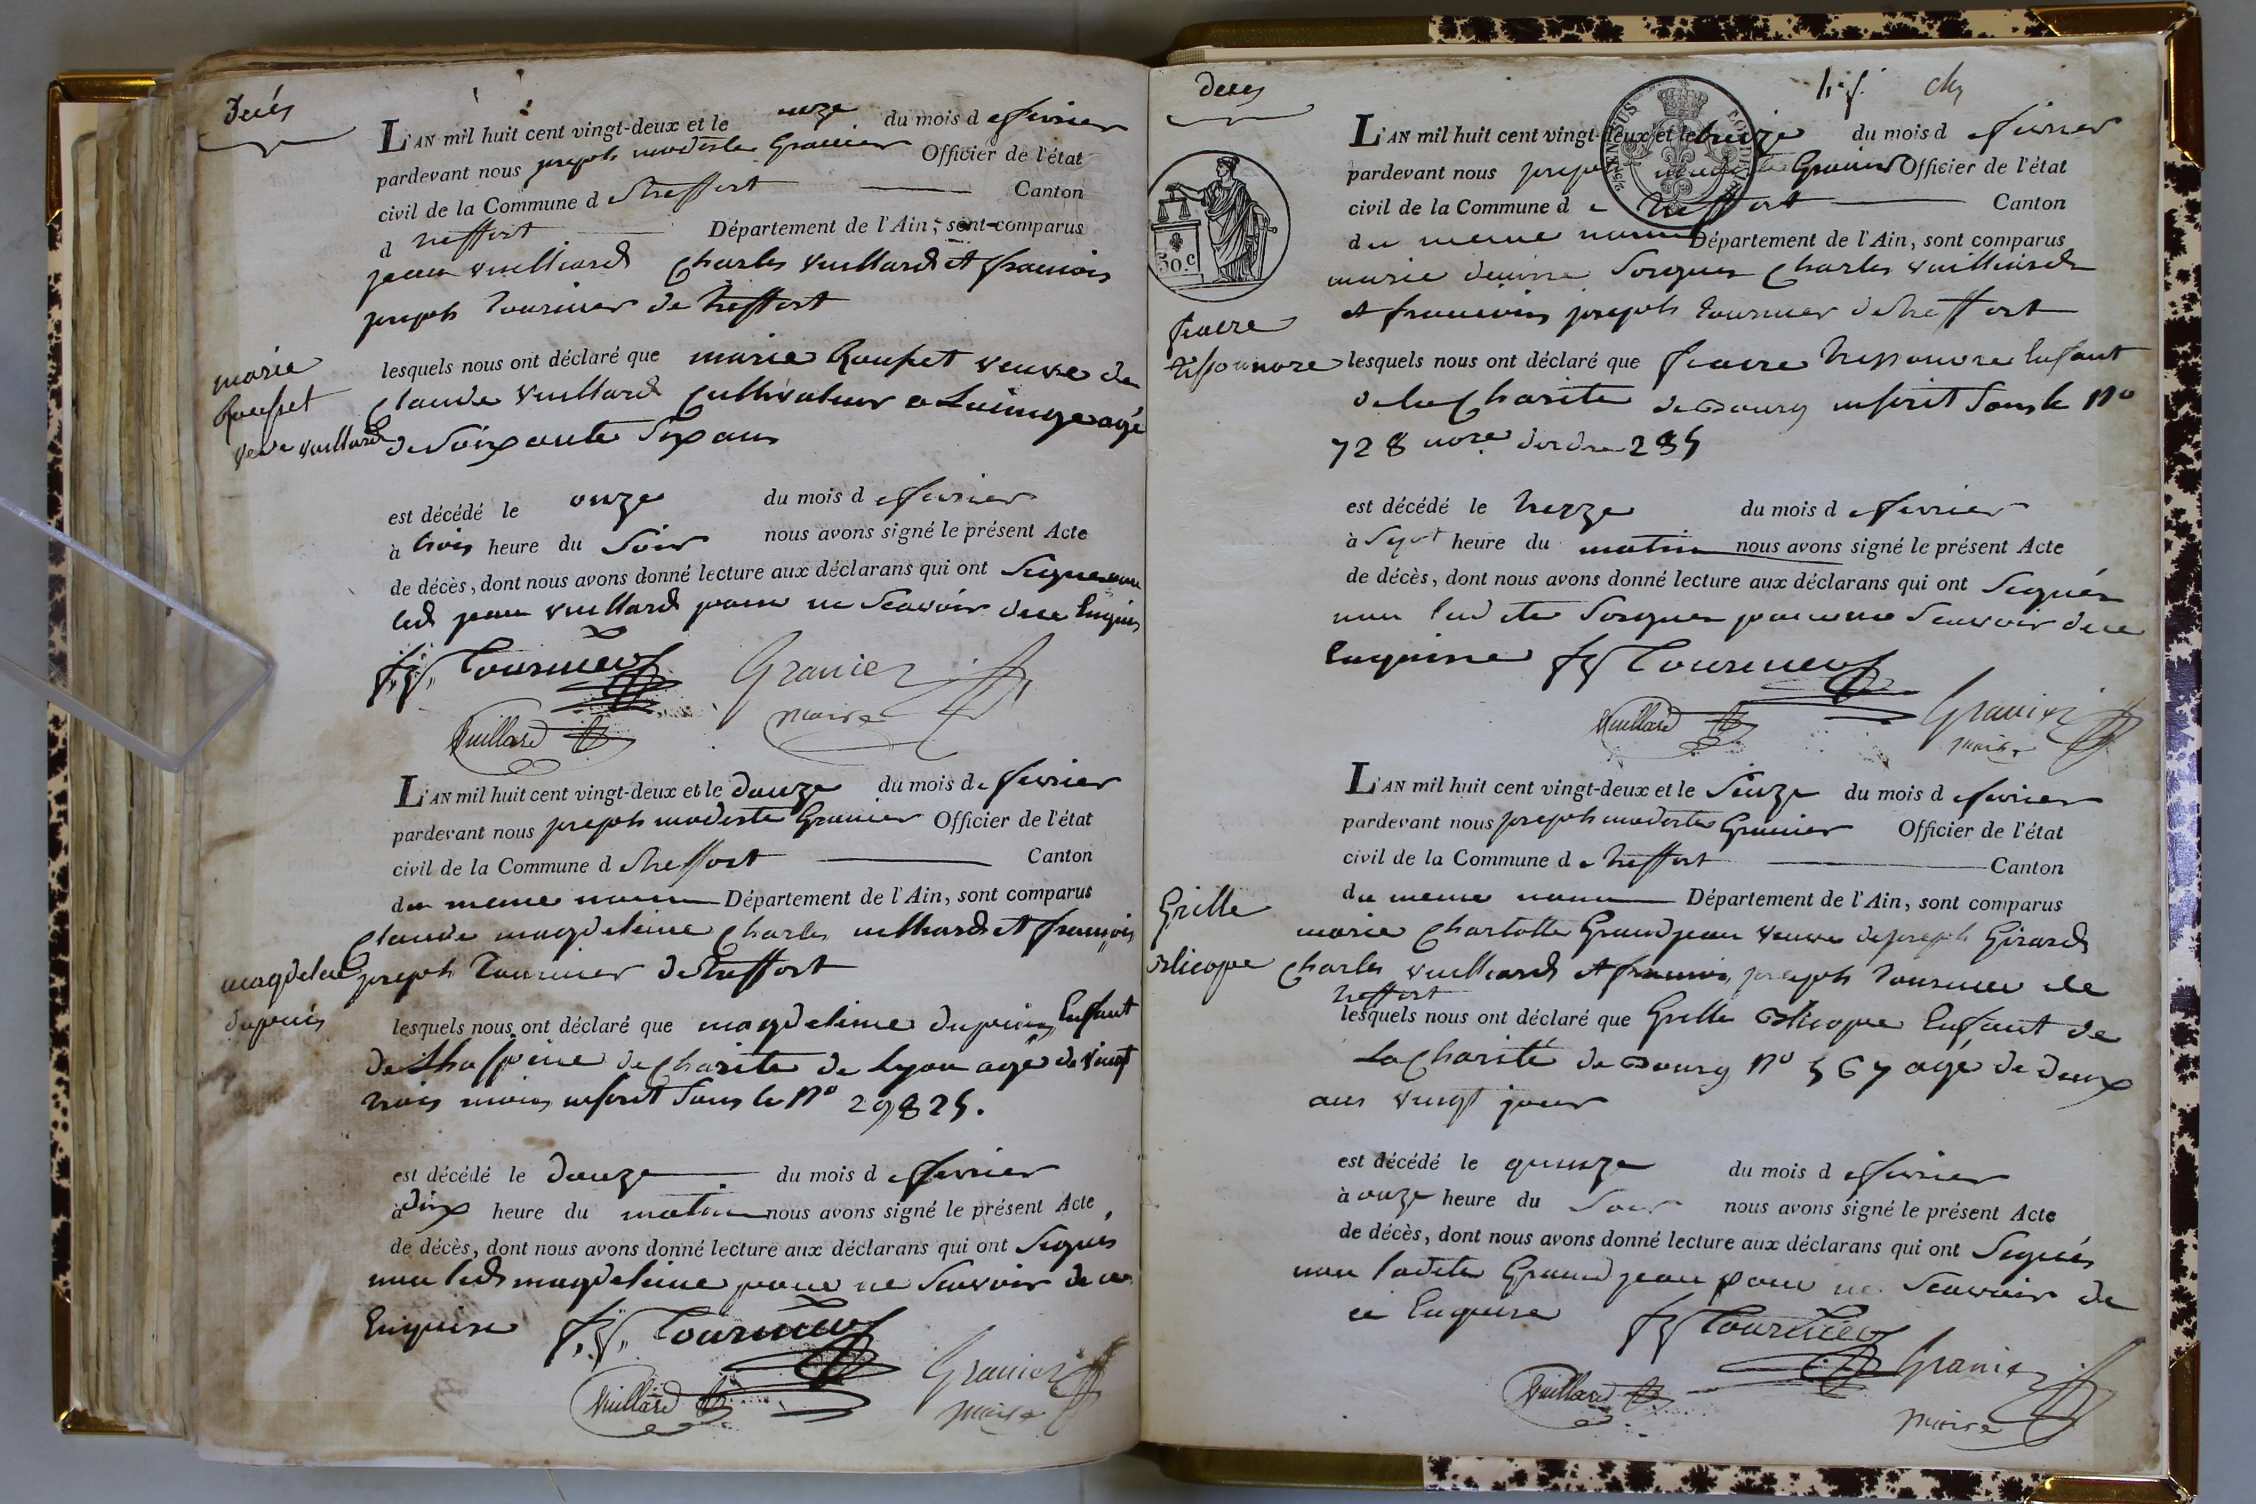 Decés
L'AN mil huit cent vingt-deux et le onze du mois de fevrier
pardevant nous joseph modeste Granier Officier de l'état
civil de la Commune d treffort Canton
d treffort Département de l'Ain, sont comparus
jean vuilliard Charles vuillard et francois
joseph tournier de treffort
marie
Roupet
veve vuillard
lesquels nous ont déclaré que marie Roupet veuve de
Claude vuillard Cultivateur a agé
de soixante six ans
est décédé le onze du mois de fevrier
à trois heure du soir nous avons signé le présent Acte
de décès, dont nous avons donné lecture aux déclarans qui ont signé non
led jean vuillard pour ne scavoir de ce enquis
f. j. Tournier Granier
maire
Vuillard
L'AN mil huit cent vingt-deux et le douze du mois de fevrier
pardevant nous joseph modeste Granier Officier de l'état
civil de la Commune d treffort Canton
du meme nom Département de l'Ain, sont comparus
Claude magdeleine Charles vuillard et françois
joseph tournier de treffort
magdelene
dupuis
lesquels nous ont déclaré que magdeleine dupuis enfant
de lhospice de Charite de lyon agé de vingt
trois mois inscrit sous le No 29825.
est décédé le douze du mois de fevrier
à dix heure du matin nous avons signé le présent Acte
de décès, dont nous avons donné lecture aux déclarans qui ont signés
non led magdeleine pour ne scavoir de ce
enquise f. j. Tournier
Granier
maire
Vuillard
deces
L'AN mil huit cent vingt-deux et le treize du mois d fevrier
pardevant nous joseph modeste Granier Officier de l'état
civil de la Commune d e treffort Canton
du meme nom Département de l'Ain, sont comparus
marie Charles vuilliard
et francois joseph tournier de treffort
50 c
lesquels nous ont déclaré que enfant
de la Charite de Bourg inscrit sous le No
728 dordre
est décédé le treize du mois de fevrier
à sept heure du matin nous avons signé le présent Acte
de décès, dont nous avons donné lecture aux déclarans qui ont signés
non ladite pour ne scavoir de ce
enquise f j Tournier
Vuillard
Granier
maire
L'AN mil huit cent vingt-deux et le seize du mois d fevrier
pardevant nous joseph modeste Granier Officier de l'état
civil de la Commune de treffort Canton
du meme nom Département de l'Ain, sont comparus
marie Charlotte Grandjean veuve de joseph Girard
Charles vuilliard et francois joseph tournier de
treffort
Grille
lesquels nous ont déclaré que Grille enfant de
la Charité de Bourg No 567 agé de deux
ans vingt jour
est décédé le quinze du mois d fevrier
à onze heure du soir nous avons signé le présent Acte
de décès, dont nous avons donné lecture aux déclarans qui ont signés
non ladite Grandjean pour ne scavoir de
ce enquise f j Tournier
Granier
Vuillard
maire